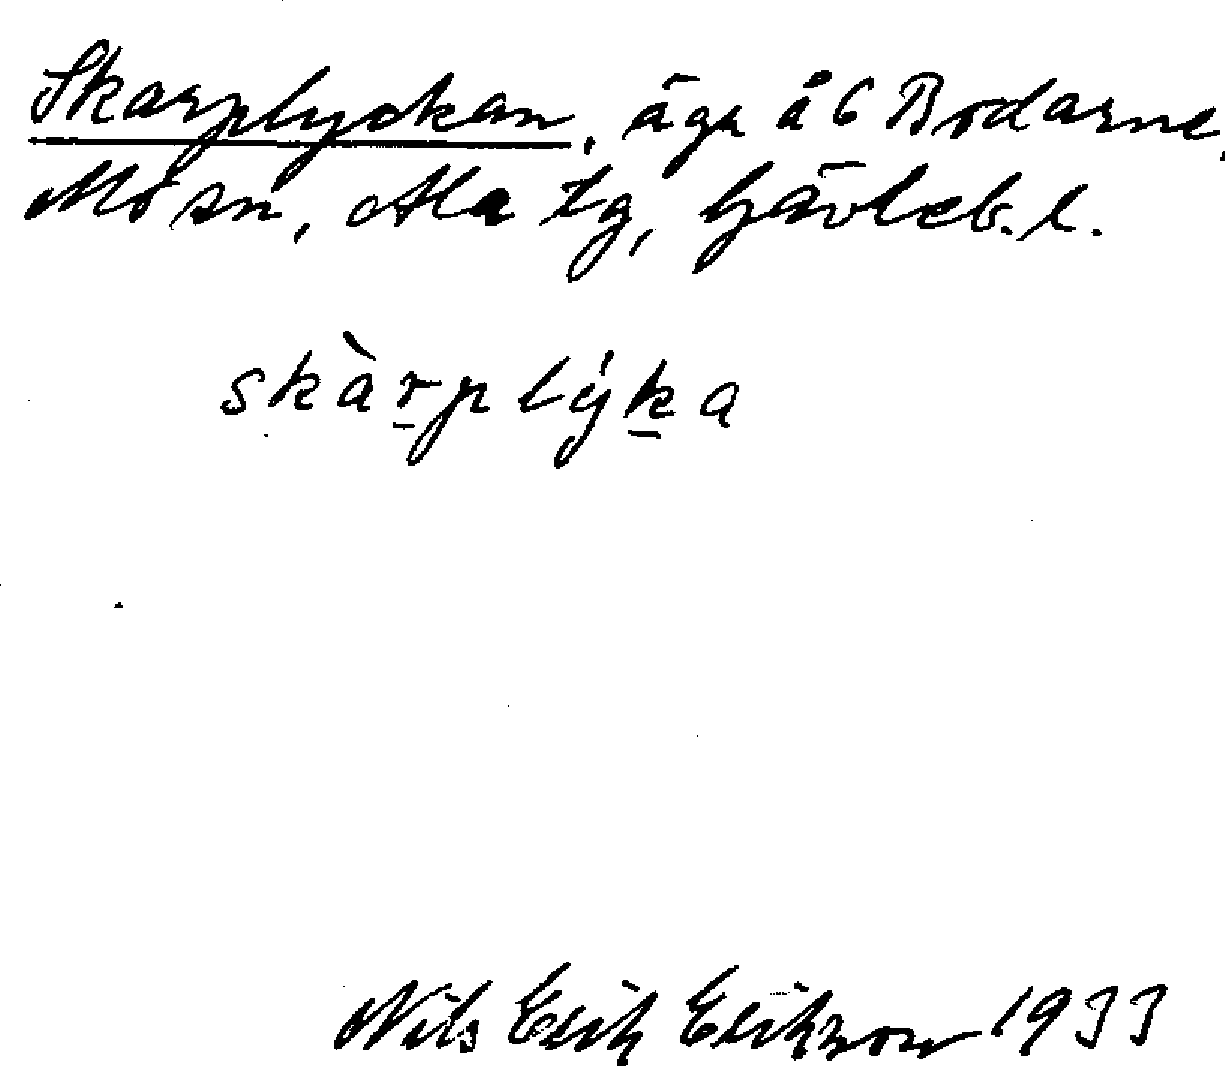 Skarplyckan, äga å 6 Bodarne,
Mo sn, Ala tg, Gävleb. l.
skàr̲plýk̲a
Nils Erik Erikson 1933